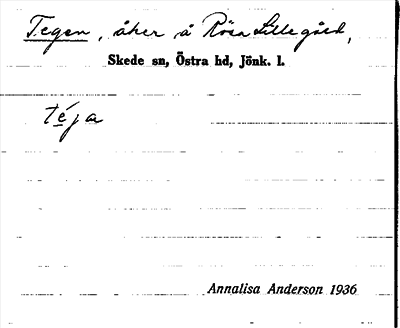 Tegen, åker å Rösa Lillegård,
Skede sn, Östra hd, Jönk. l.
téja
Annalisa Anderson 1936